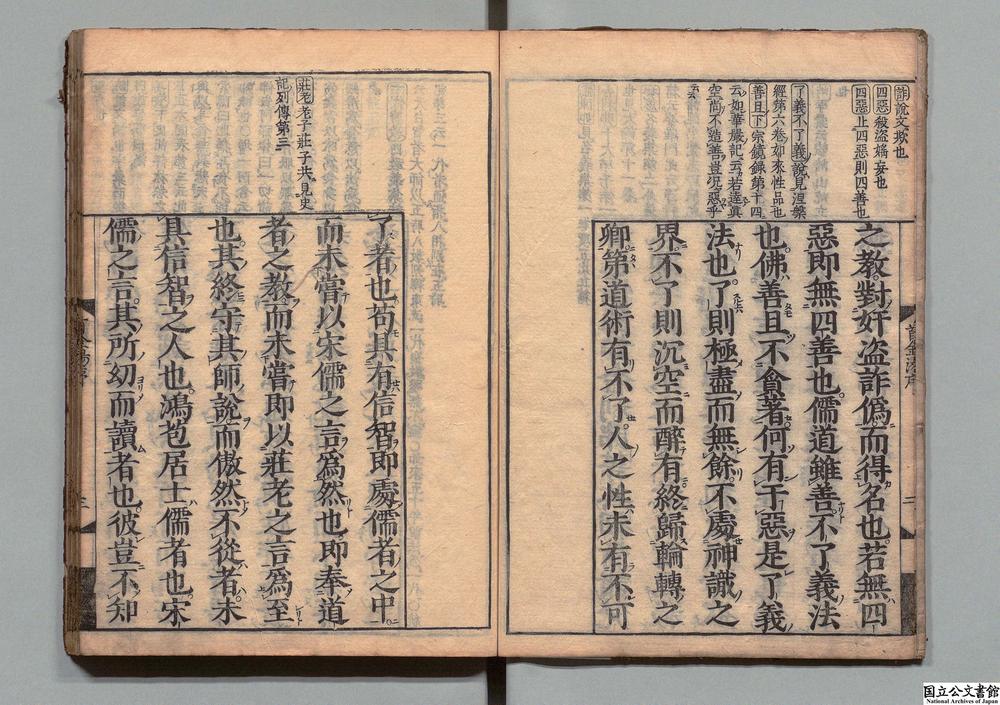 詐說文欺也
四惡殺盜婬妄也
四惡止四惡則四善也
了義不了義說見涅槃
經第六卷如來性品也
善且下宗鏡錄第十四
云如華嚴記云若達真
空尚不造善豈況惡乎
之教對奸盜詐僞而得名也若無四
惡即無四善也儒道雖善不了義法
也佛善且不貪著何有于惡是了義
法也了則極盡而無餘不處神識之
界不了則沉空而醉有終歸輪轉之
卿第道術有不了人之性未有不可
莊老老子莊子共見史
記列傳第三
了者也苟其有信智即處儒者之中
而未嘗以宋儒之言爲然也即奉道
者之教而未嘗即以莊老之言爲至
也其終守其師說而傲然不從者未
具信智之人也鴻苞居士儒者也宋
儒之言其所幼而讀者也彼豈不知
国立公文書館
National Archives of Japan